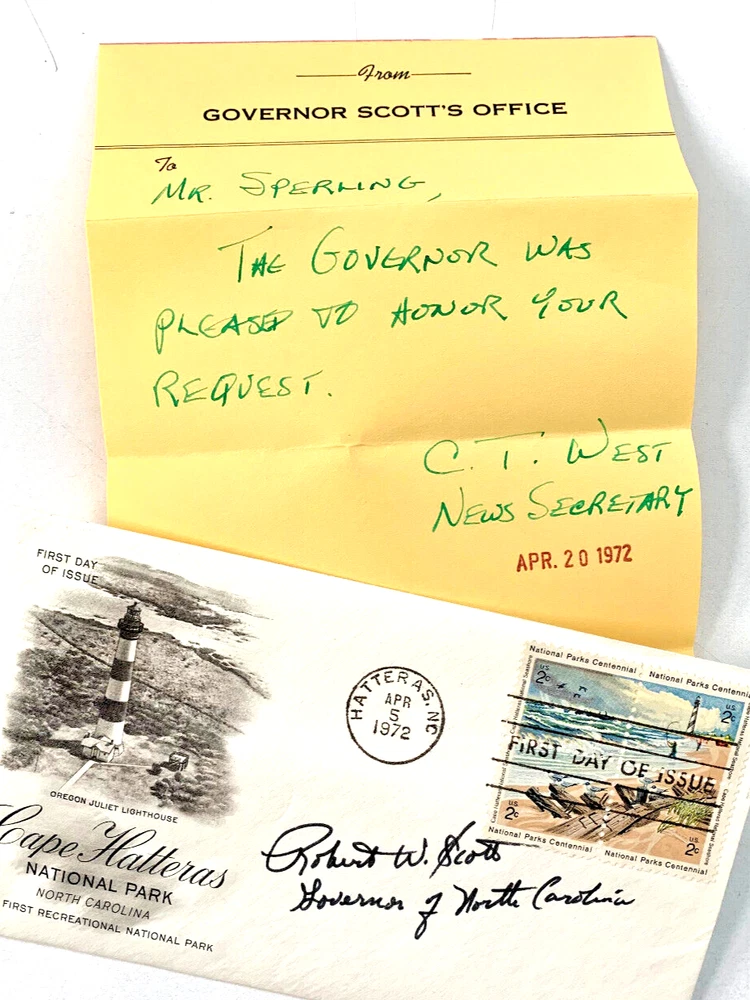 From
GOVERNOR SCOTT'S OFFICE
To
MR. SPERLING,
THE GOVERNOR WAS
PLEASED TO HONOR YOUR
REQUEST.
C. T. WEST
NEWS SECRETARY
APR. 20 1972
FIRST DAY
OF ISSUE
OREGON JULIET LIGHTHOUSE
Cape Hatteras
NATIONAL PARK
NORTH CAROLINA
FIRST RECREATIONAL NATIONAL PARK
HATTERAS, NC
APR
5
1972
National Parks Centennial
National Parks Centennial
U.S.
2c
U.S.
2c
FIRST DAY OF ISSUE
U.S.
2c
U.S.
2c
National Parks Centennial
National Parks Centennial
Cape Hatteras National Seashore
Cape Hatteras National Seashore
Robert W. Scott
Governor of North Carolina